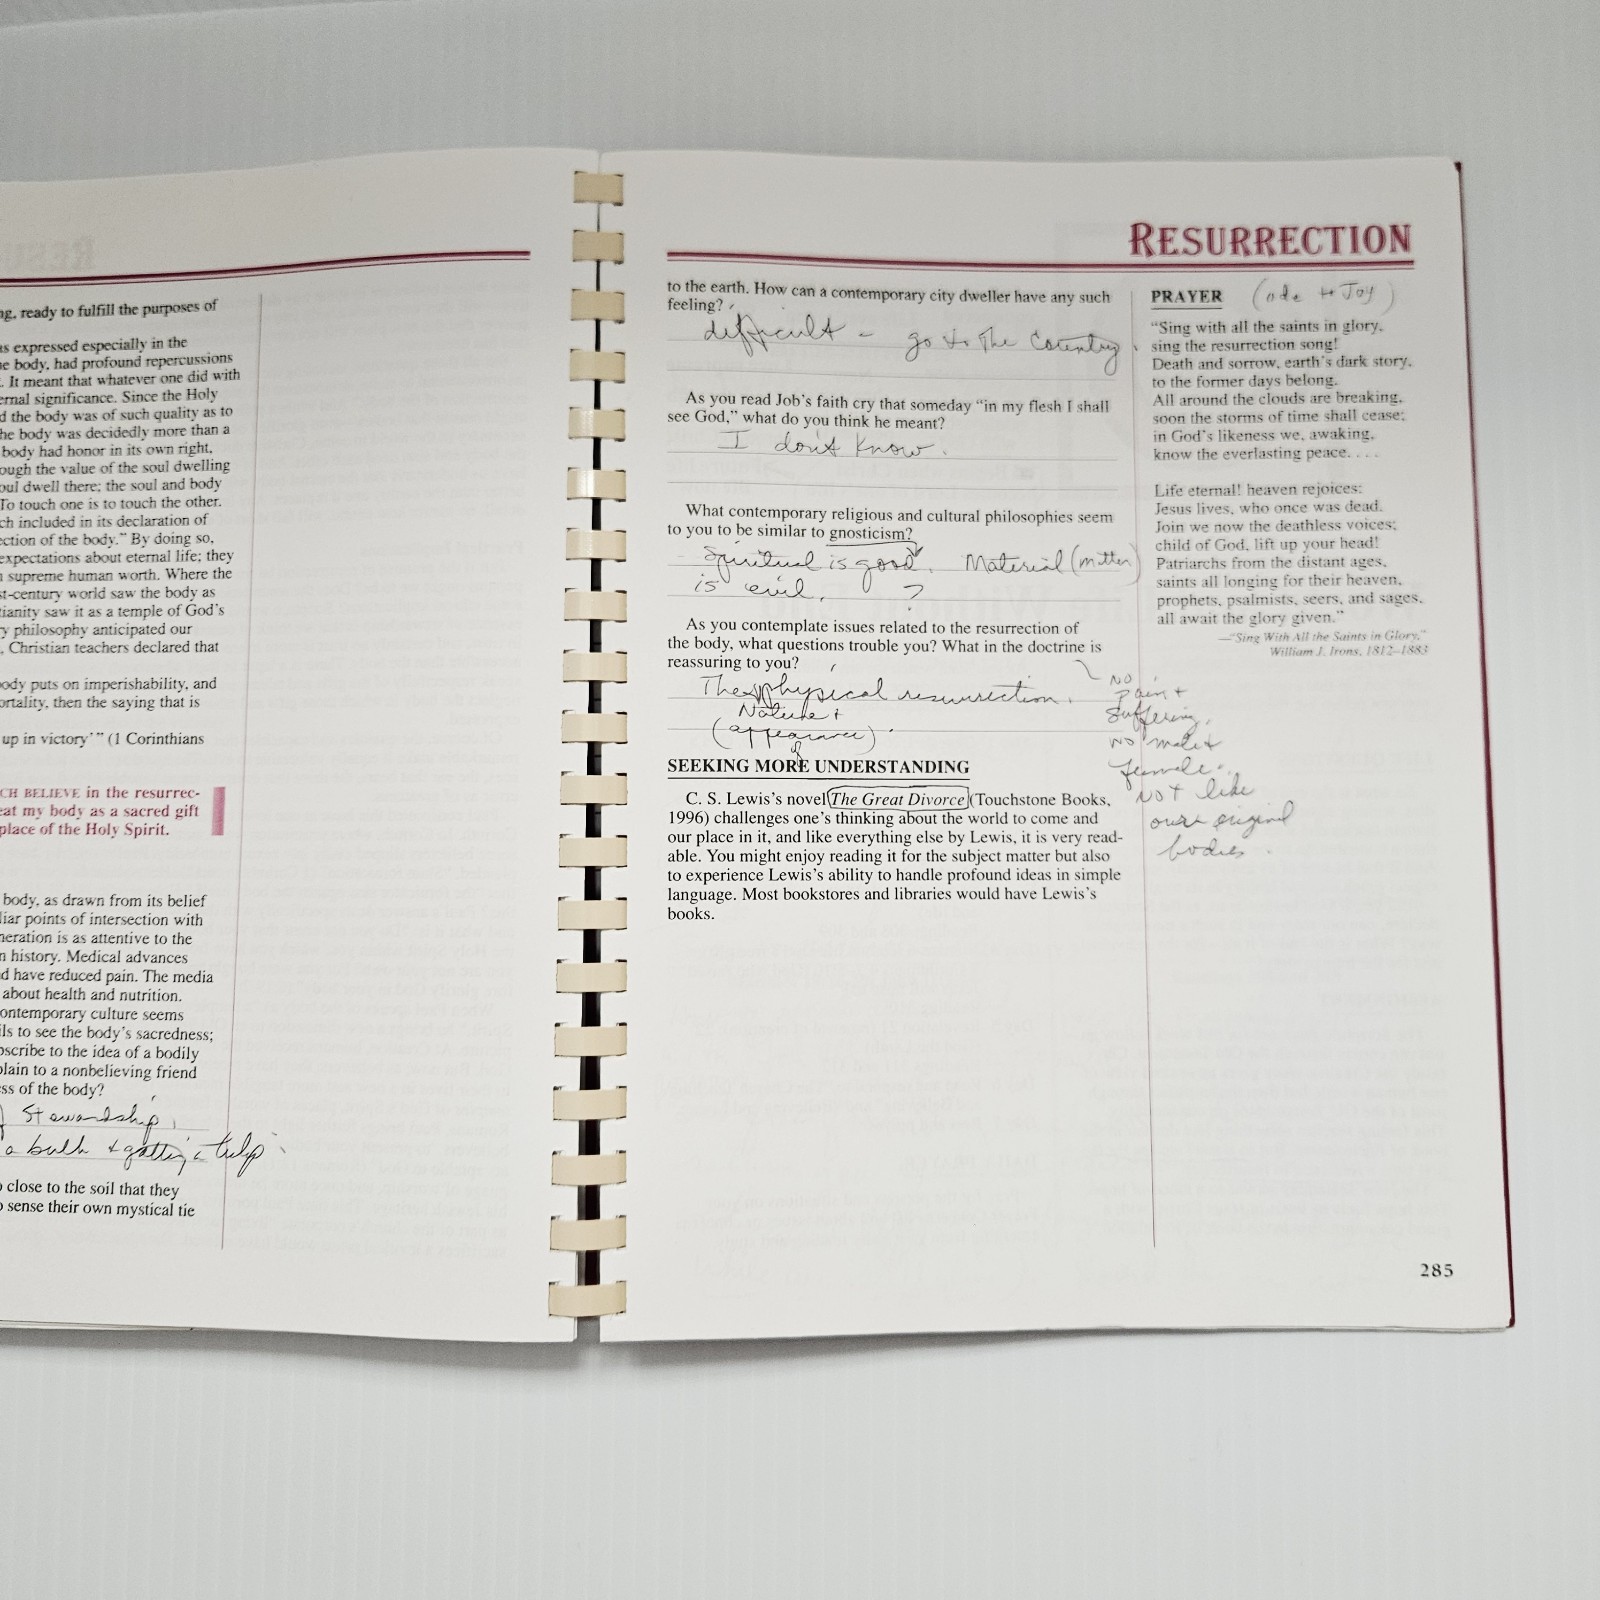 ng, ready to fulfill the purposes of
as expressed especially in the
e body, had profound repercussions
. It meant that whatever one did with
ernal significance. Since the Holy
d the body was of such quality as to
he body was decidedly more than a
body had honor in its own right,
ough the value of the soul dwelling
oul dwell there; the soul and body
To touch one is to touch the other.
ch included in its declaration of
ection of the body." By doing so,
expectations about eternal life; they
supreme human worth. Where the
st-century world saw the body as
tianity saw it as a temple of God's
y philosophy anticipated our
, Christian teachers declared that
ody puts on imperishability, and
ortality, then the saying that is
up in victory'" (1 Corinthians
CH BELIEVE in the resurrec-
eat my body as a sacred gift
place of the Holy Spirit.
body, as drawn from its belief
liar points of intersection with
neration is as attentive to the
n history. Medical advances
d have reduced pain. The media
about health and nutrition.
ontemporary culture seems
ils to see the body's sacredness;
bscribe to the idea of a bodily
plain to a nonbelieving friend
ss of the body?
Stewardship,
a bulb + getting a tulip
close to the soil that they
o sense their own mystical tie
RESURRECTION
to the earth. How can a contemporary city dweller have any such
feeling?
difficult - go to the Country.
As you read Job's faith cry that someday "in my flesh I shall
see God," what do you think he meant?
I don't know.
What contemporary religious and cultural philosophies seem
to you to be similar to gnosticism?
Spiritual is good. Material (matter)
is evil. ?
As you contemplate issues related to the resurrection of
the body, what questions trouble you? What in the doctrine is
reassuring to you?
The physical resurrection.
Nature +
(appearance)
of
No
pain +
suffering,
no male +
female.
Not like
our original
bodies.
SEEKING MORE UNDERSTANDING
C. S. Lewis's novel The Great Divorce (Touchstone Books,
1996) challenges one's thinking about the world to come and
our place in it, and like everything else by Lewis, it is very read-
able. You might enjoy reading it for the subject matter but also
to experience Lewis's ability to handle profound ideas in simple
language. Most bookstores and libraries would have Lewis's
books.
PRAYER (ode to Joy)
"Sing with all the saints in glory,
sing the resurrection song!
Death and sorrow, earth's dark story,
to the former days belong.
All around the clouds are breaking,
soon the storms of time shall cease;
in God's likeness we, awaking,
know the everlasting peace. . . .
Life eternal! heaven rejoices:
Jesus lives, who once was dead.
Join we now the deathless voices;
child of God, lift up your head!
Patriarchs from the distant ages,
saints all longing for their heaven,
prophets, psalmists, seers, and sages,
all await the glory given."
—"Sing With All the Saints in Glory,"
William J. Irons, 1812–1883
285